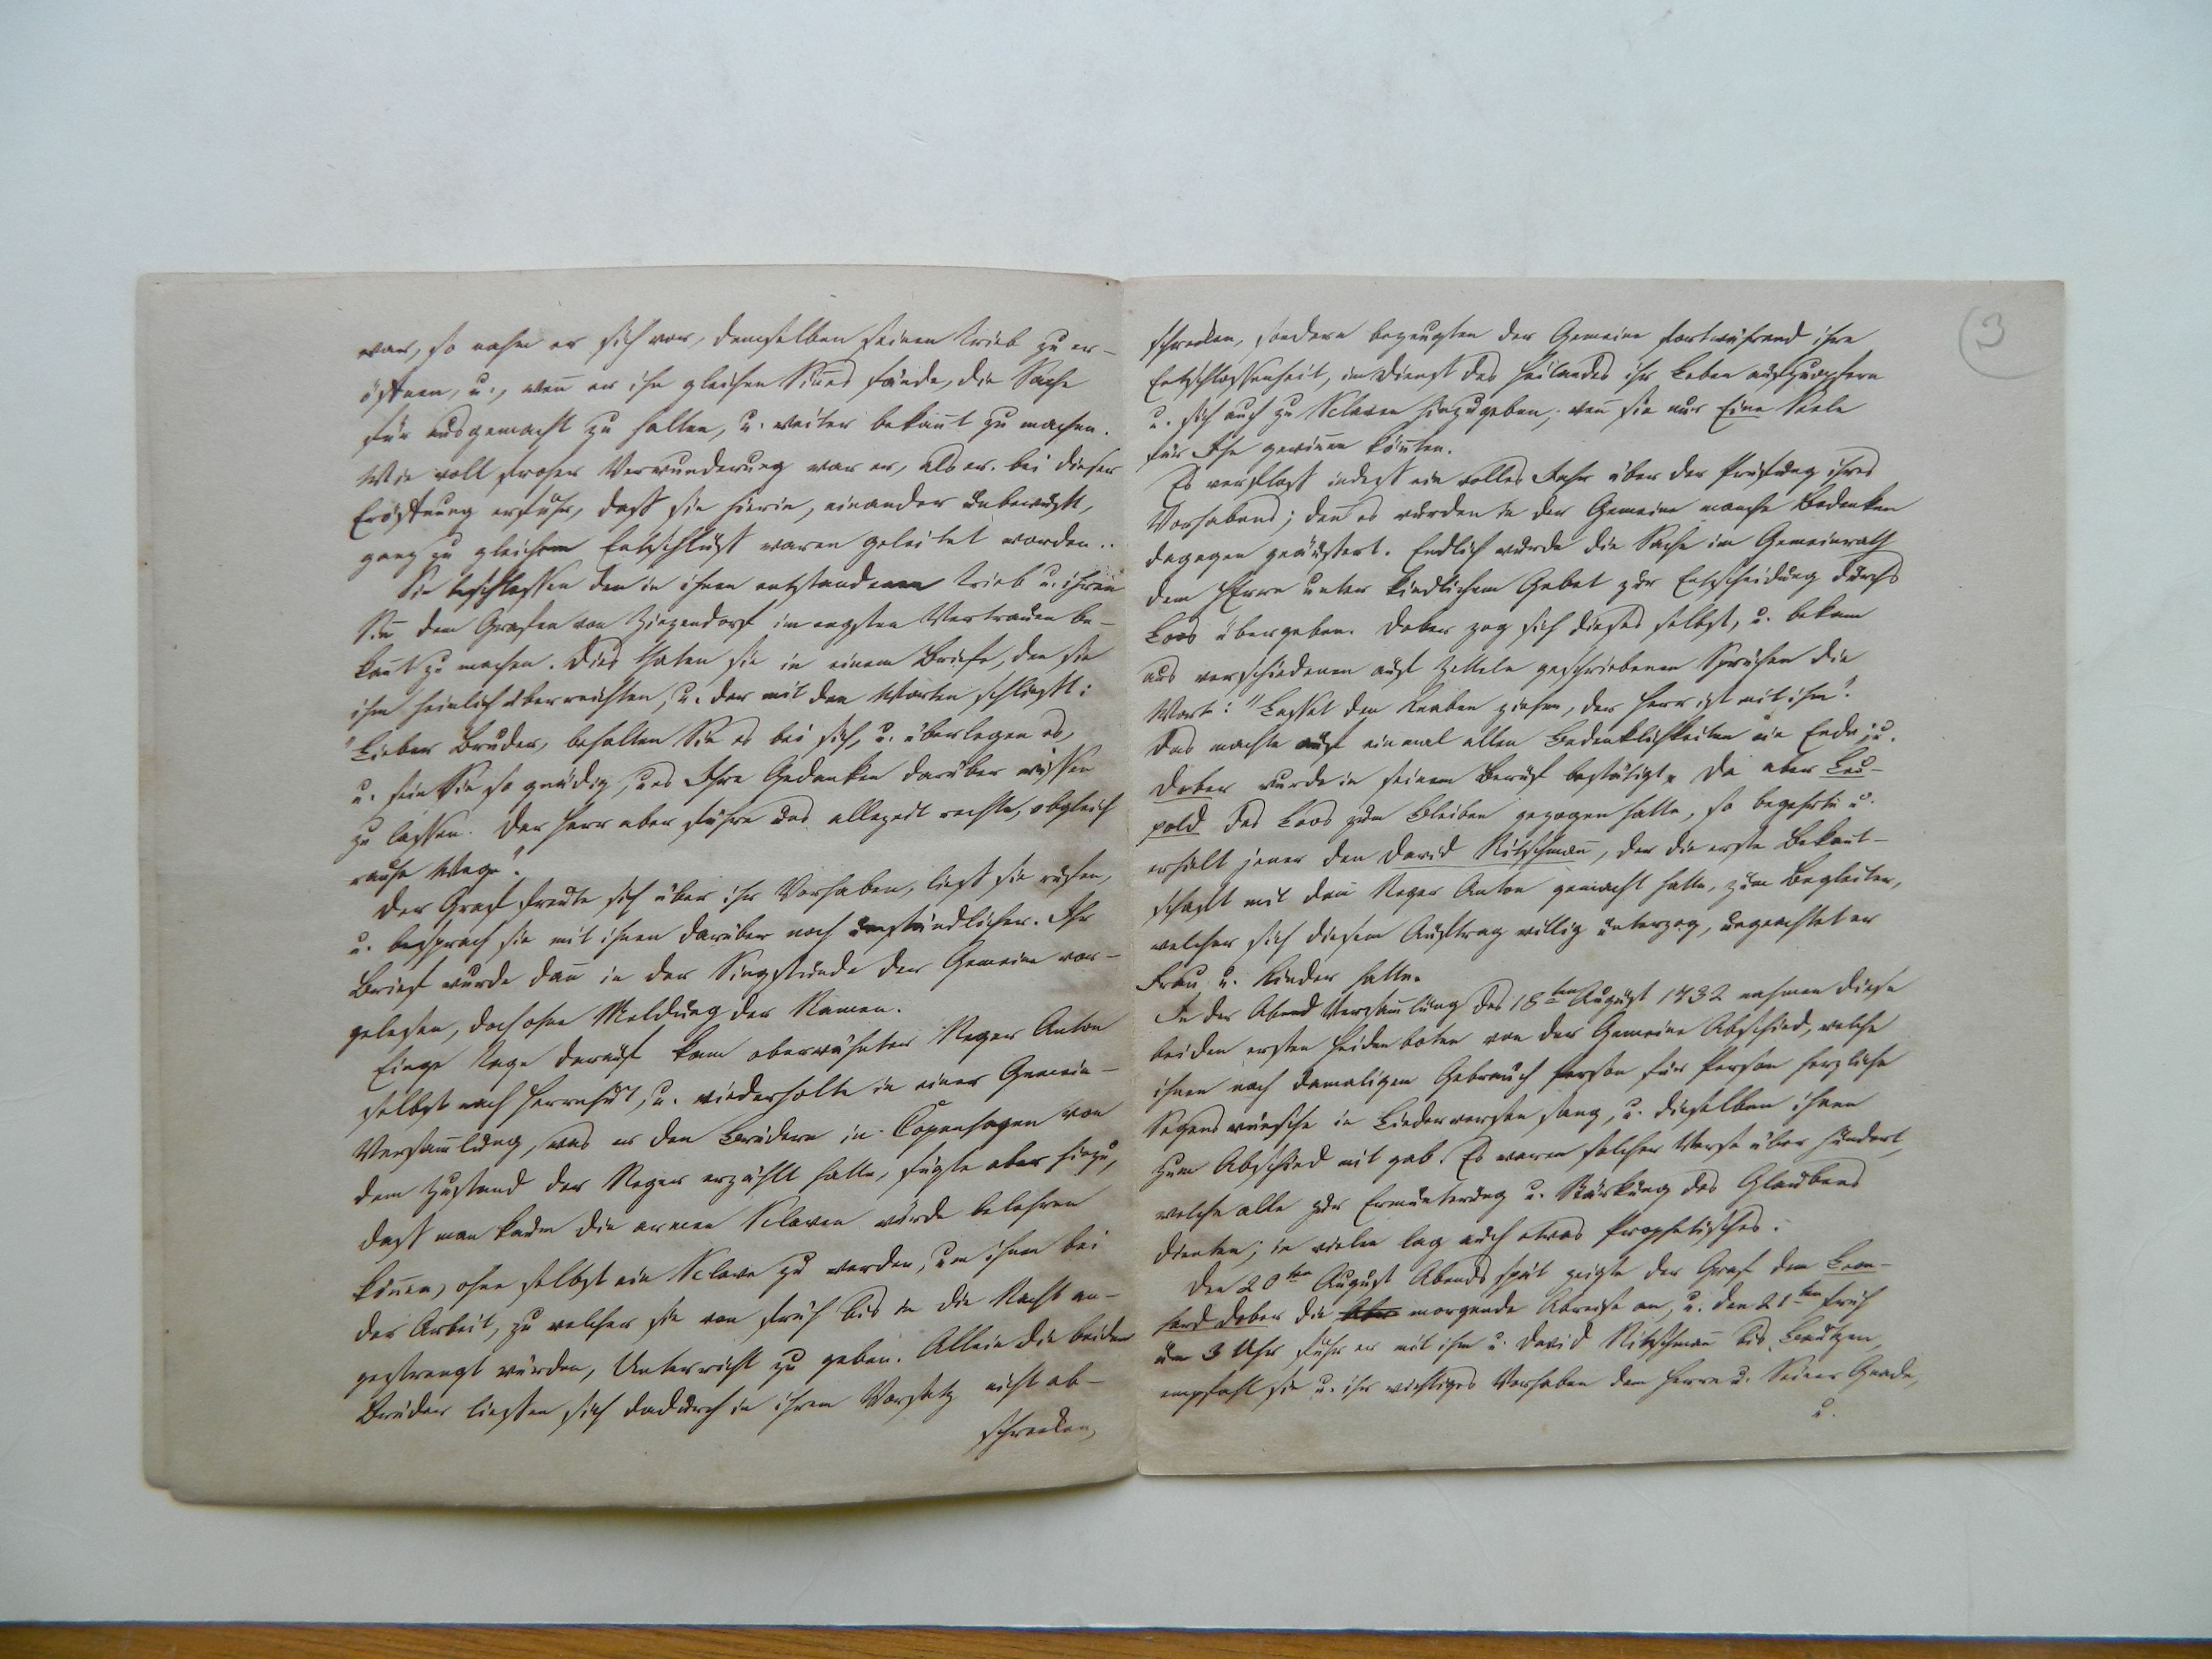 war, so nahm er sich vor, demselben seinen Trieb zu er-
öffnen, u., weñ er ihn gleichen Siñes fände, die Sache
für ausgemacht zu halten, u. weiter bekañt zu machen.
Wie voll froher Verwunderung war er, als er bei dieser
Eröffnung erfuhr, daß sie hierin, einander unbewußt,
ganz zu gleichem Entschluß waren geleitet worden.
Sie beschlossen den in ihnen entstandenen Trieb u. ihren
Siñ dem Grafen von Zinzendorf im engsten Vertrauen be-
kañt zu machen. Dies thaten sie in einem Briefe, den sie
ihm heimlich überreichten, u. der mit den Worten schließt:
"Lieber Bruder, behalten Sie es bei sich, u. überlegen es,
u. sein Sie so gnädig, uns Ihre Gedanken darüber wissen
zu lassen. Der Herr aber führe uns allezeit rechte, obgleich
rauhe Wege".
Der Graf freute sich über ihr Vorhaben, ließ sie rufen,
u. besprach sie mit ihnen darüber noch umständlicher. Ihr
Brief wurde dañ in der Singstunde der Gemeine vor-
gelesen, doch ohne Meldung der Namen.
Einige Tage darauf kam oberwähnter Neger Anton
selbst nach Herrnhut, u. wiederholte in einer Gemein-
Versam̃lung, was er den Brüdern in Copenhagen von
dem Zustand der Neger erzählt hatte, fügte aber hinzu,
daß man kaum die armen Sclaven würde belehren
köñen, ohne selbst ein Sclave zu werden, um ihnen bei
der Arbeit, zu welcher sie von früh bis in die Nacht an-
gestrengt würden, Unterricht zu geben. Allein die beiden
Brüder ließen sich dadurch in ihrem Vorsatz nicht ab-
schrecken,
3
schrecken, sondern bezeugten der Gemeine fortwährend ihre
Entschlossenheit, im Dienst des Heilandes ihr Leben aufzuopfern
u. sich auch zu Sclaven hinzugeben, weñ sie nur Eine Seele
für Ihn gewiñen köñten.
Es verfloß indeß ein volles Jahr über der Prüfung ihres
Vorhabens; deñ es wurden in der Gemeine manche Bedenken
dagegen geäußert. Endlich wurde die Sache im Gemeinrath
dem Herrn unter kindlichem Gebet zur Entscheidung durchs
Loos übergeben. Dober zog sich dieses selbst, u. bekam
aus verschiedenen auf Zetteln geschriebenen Sprüchen die
Worte: "Lasset den Knaben ziehen, der Herr ist mit ihm".
Das machte auf einmal allen Bedenklichkeiten ein Ende; u.
Dober wurde in seinem Beruf bestätigt. Da aber Leu-
pold das Loos zum Bleiben gezogen hatte, so begehrte u.
erhielt jener den David Nitschmañ, der die erste Bekañt-
schaft mit dem Neger Anton gemacht hatte, zum Begleiter,
welcher sich diesem Auftrag willig unterzog, ungeachtet er
Frau u. Kinder hatte.
In der Abend Versam̃lung des 18ten August 1732 nahmen diese
beiden ersten Heidenboten von der Gemeine Abschied, welche
ihnen nach damaligem Gebrauch Person für Person herzliche
Segenswünsche in Liederversen sang, u. dieselben ihnen
zum Abschied mit gab. Es waren solcher Verse über hundert,
welche alle zur Ermunterung u. Stärkung des Glaubens
dienten; in vielen lag auch etwas Prophetisches.
Den 20ten August Abends spät zeigte der Graf dem Leon-
hard Dober die morgende Abreise an, u. den 21ten früh
um 3 Uhr fuhr er mit ihm u. David Nitschmañ bis Bautzen,
empfahl sie u. ihr wichtiges Vorhaben dem Herrn u. Seiner Gnade,
u.